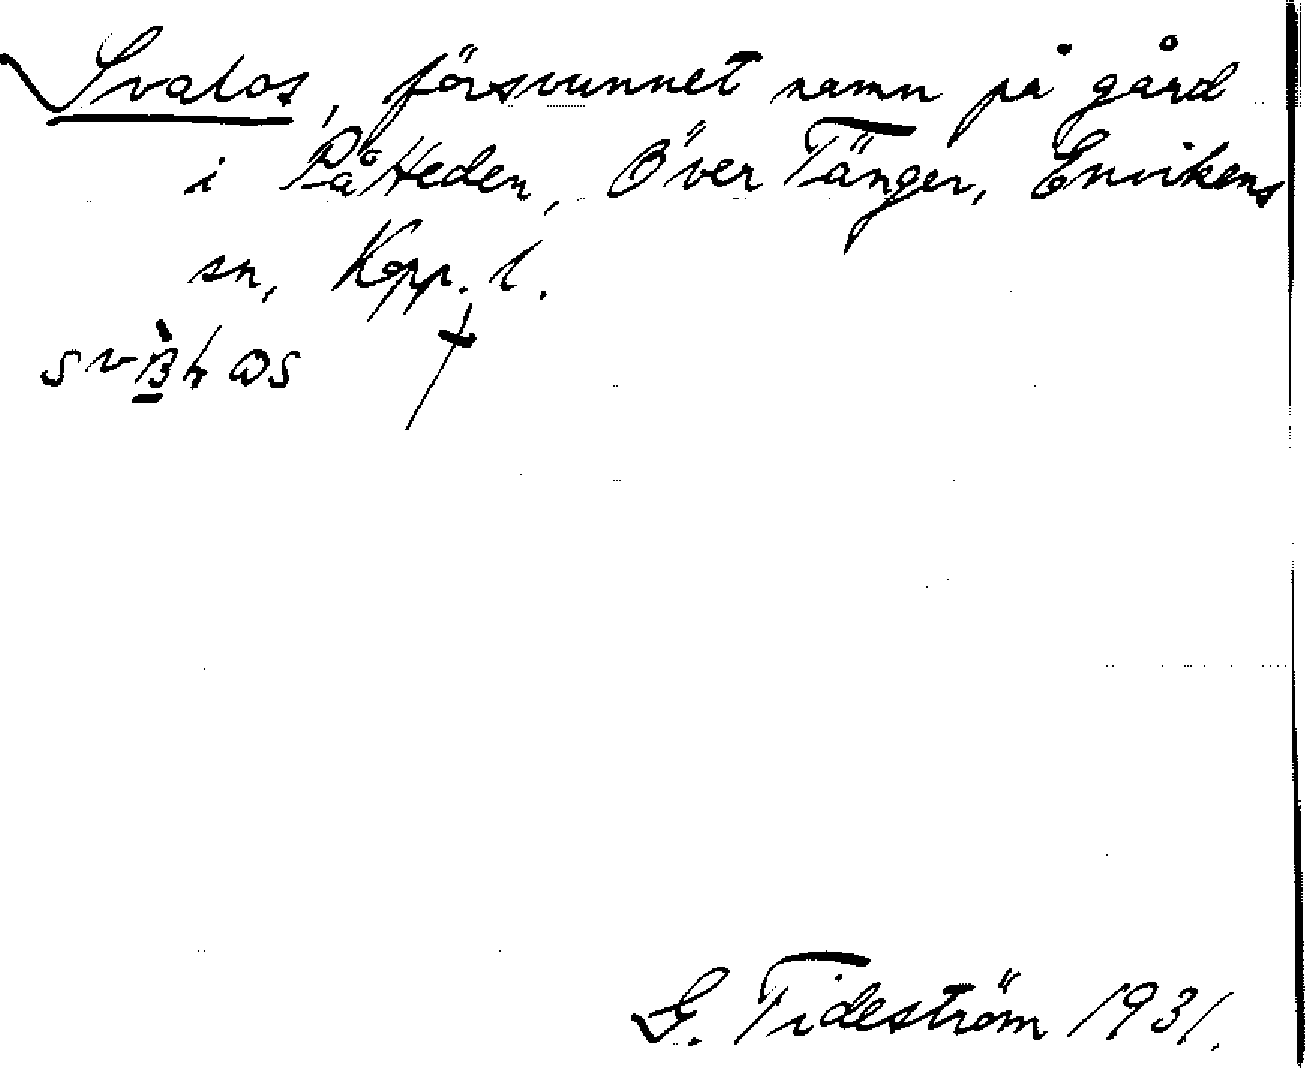 Svalos, försvunnet namn på gård
i På Heden, Över Tänger, Envikens
sn, Kopp. l.
G. Tideström 1931.